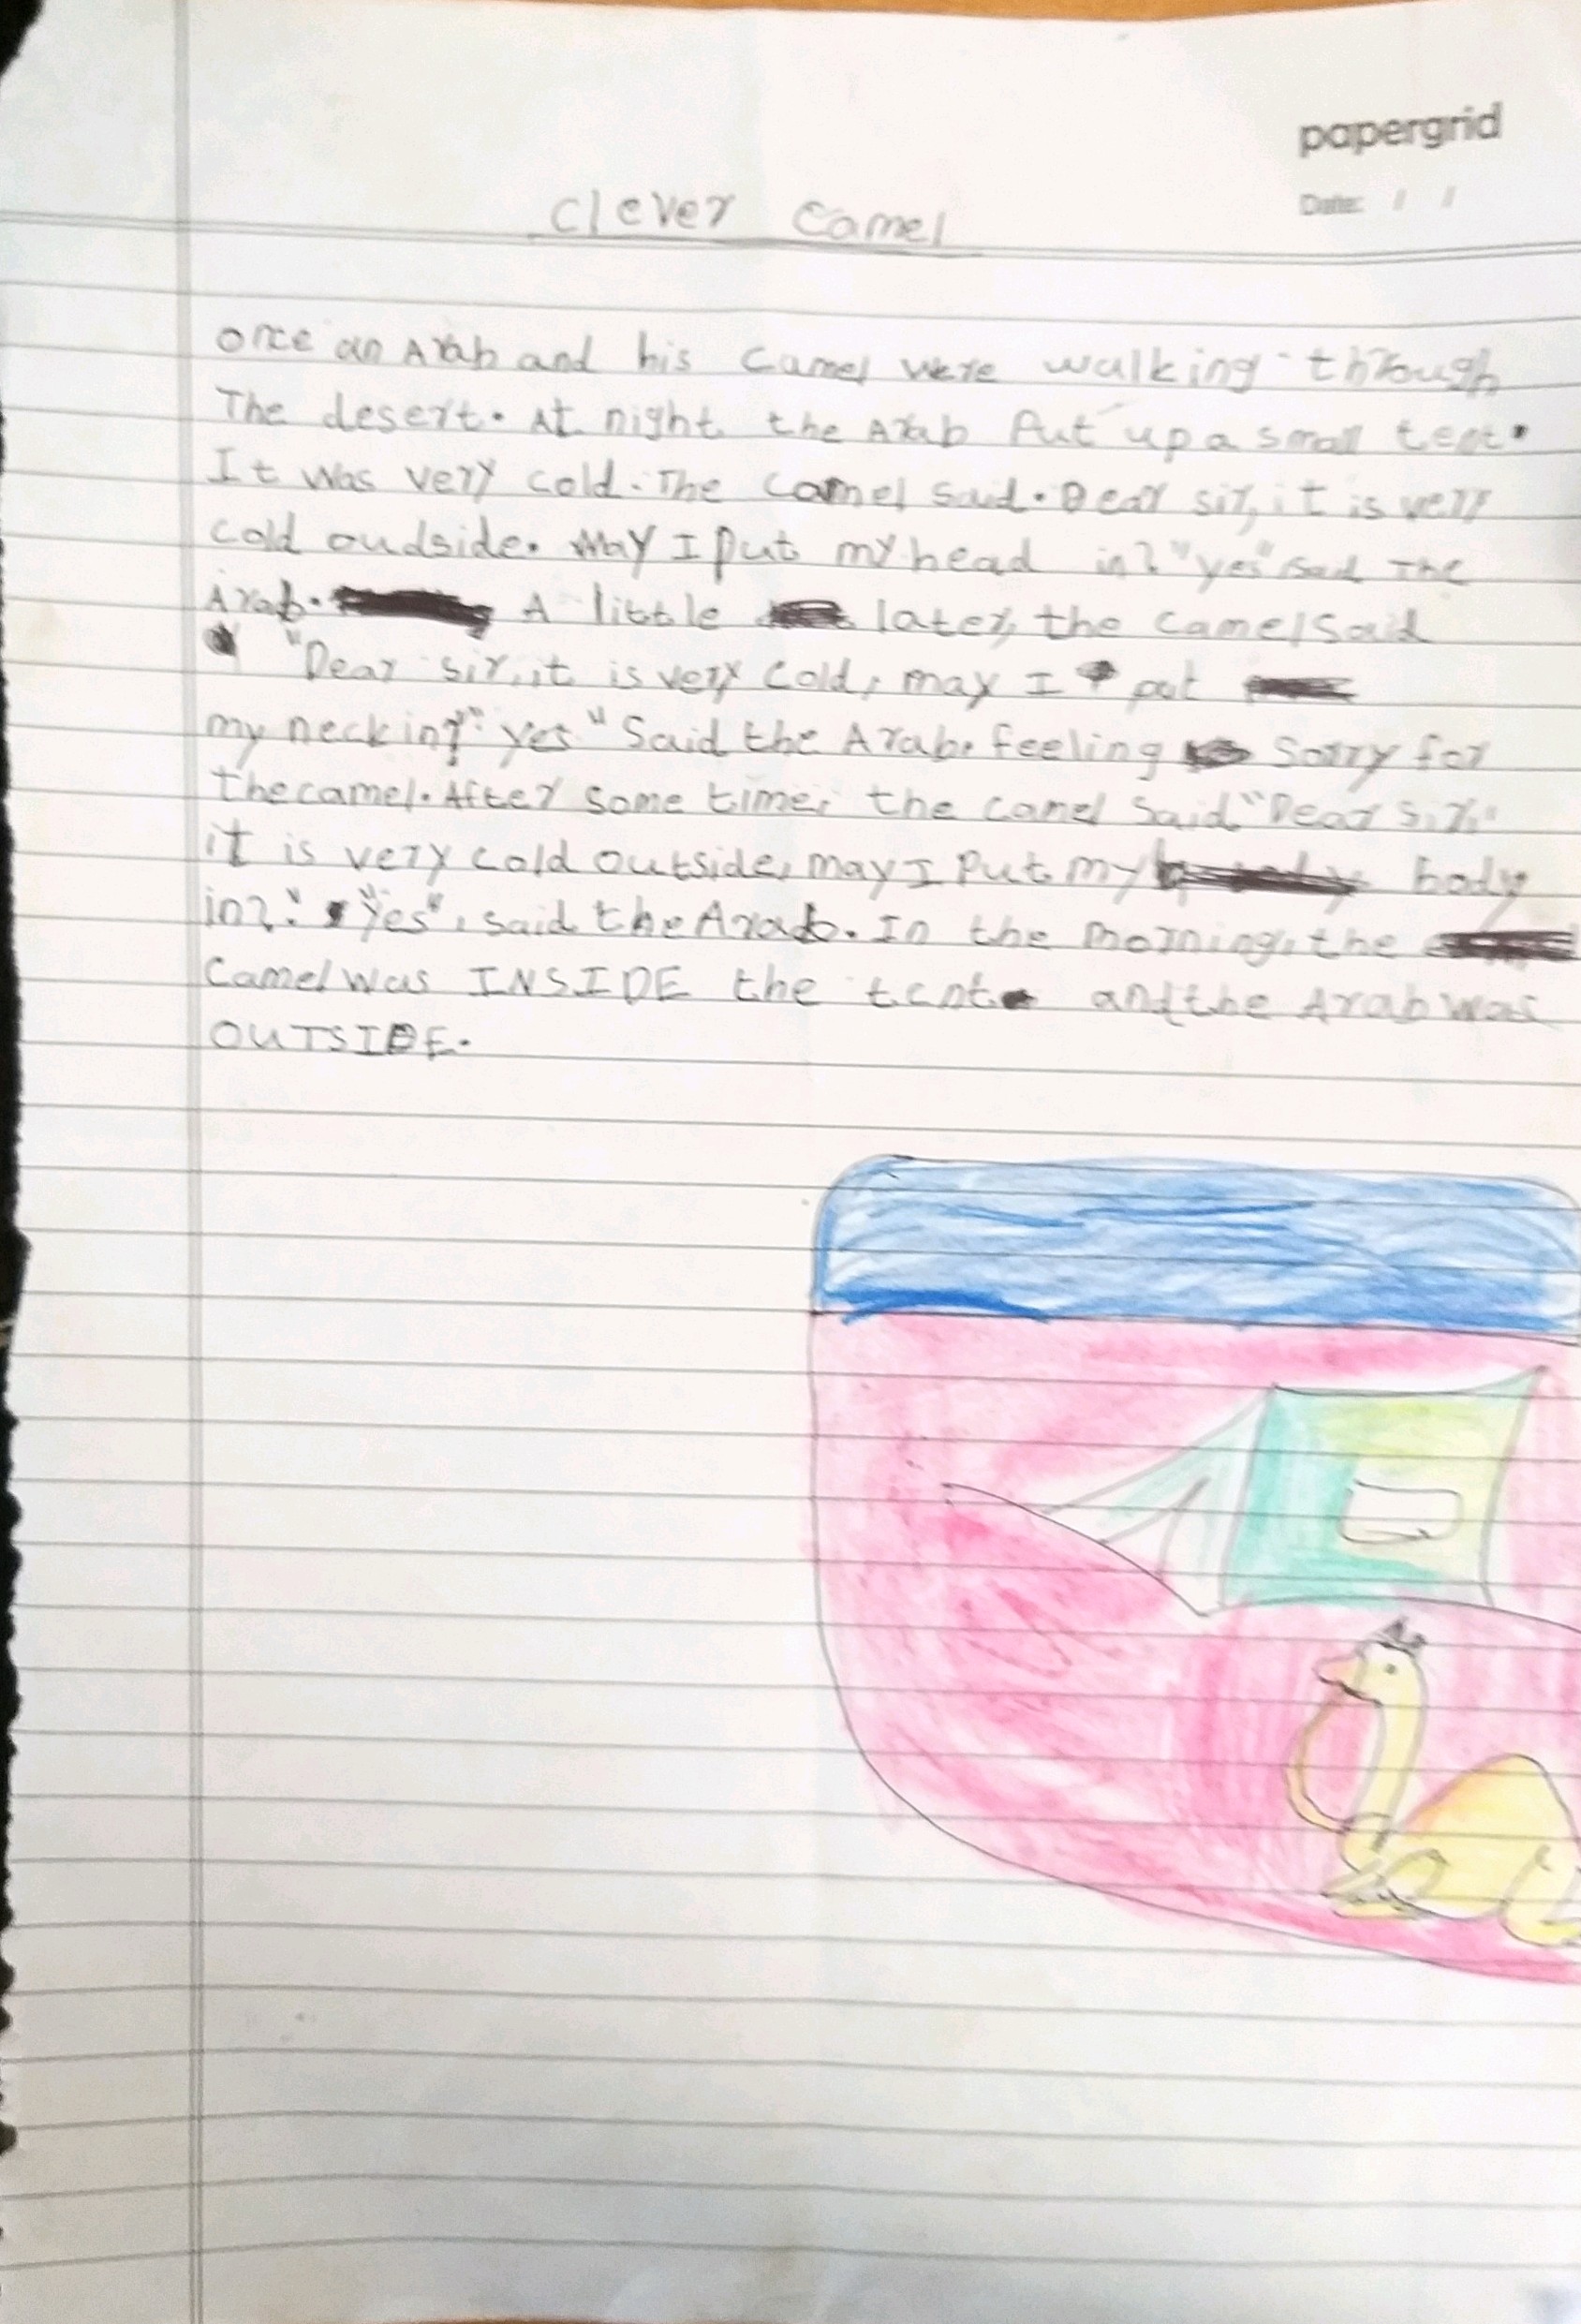 papergrid
Date: / /
Clever Camel
once an Arab and his Camel were walking through
The desert. At night the Arab Put up a small tent.
It was very cold. The camel said. Dear sir, it is very
cold oudside. May I put my head in? "yes" said The
Arab. A little later, the camel said
"Dear sir, it is very cold, may I put
my neck in?" "yes" Said the Arab. feeling Sorry for
the camel. After some time, the camel said "Dear sir,"
it is very cold outside, may I put my body
in?" "Yes", said the Arab. In the morning, the
Camel was INSIDE the tent and the Arab was
OUTSIDE.